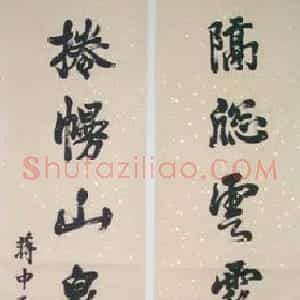 隔牕雲霧
捲幔山泉
蔣中
Shufaziliao.COM